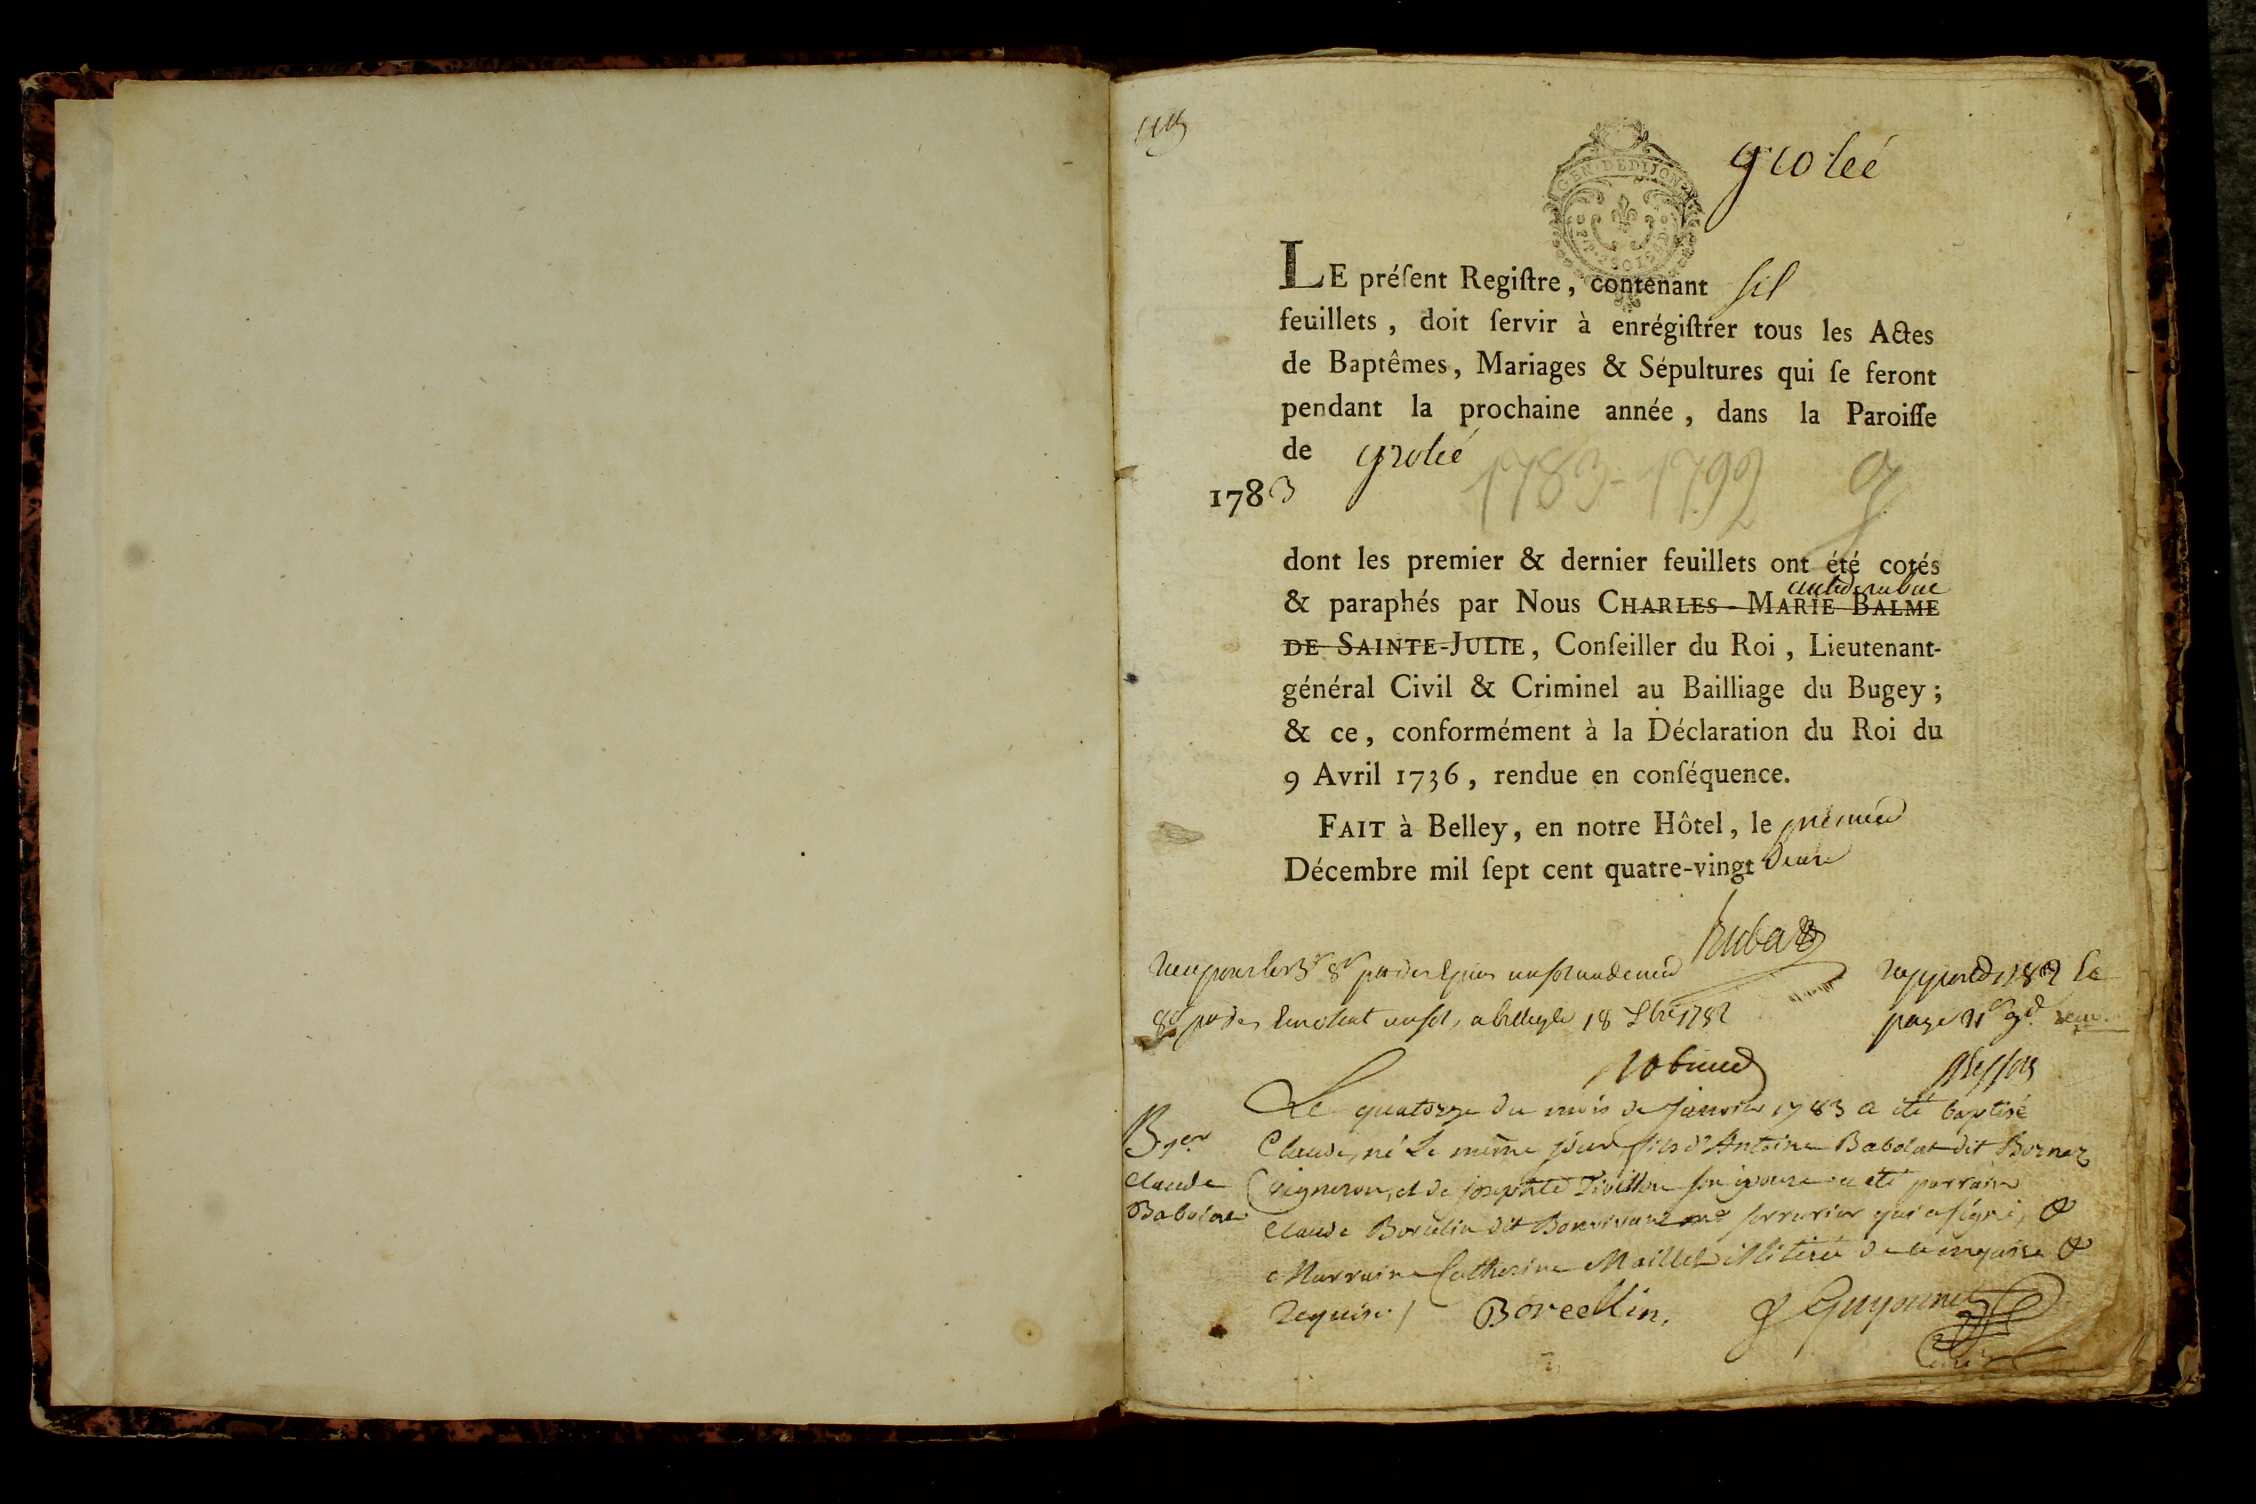 groleé
GEN. DE DIJON
LE préſent Regiſtre, contenant ſil
feuillets, doit ſervir à enrégiſtrer tous les Actes
de Baptêmes, Mariages & Sépultures qui ſe feront
pendant la prochaine année, dans la Paroiſſe
de groleé
1783
1783-1792 g
dont les premier & dernier feuillets ont été cotés
& paraphés par Nous CHARLES-MARIE BALME
DE SAINTE-JULIE, Conſeiller du Roi, Lieutenant-
général Civil & Criminel au Bailliage du Bugey;
& ce, conformément à la Déclaration du Roi du
9 Avril 1736, rendue en conſéquence.
FAIT à Belley, en notre Hôtel, le premier
Décembre mil ſept cent quatre-vingt deux
Rubat
a belley le 18 1782
page
Le quatorze du mois de Janvier 1783 a été baptisé
Claude, né Le même jour, fils d'Antoine Babolat dit Bornaz
vigneron, et de Josephte son épouse a été parrain
Claude Borcelin dit Bonvivant me serrurier qui a signé, &
Marraine Catherine Maillet illiterée de ce enquise &
requise /
Bger
Claude
Babolat
Borcellin,
Guyonnet
Curé